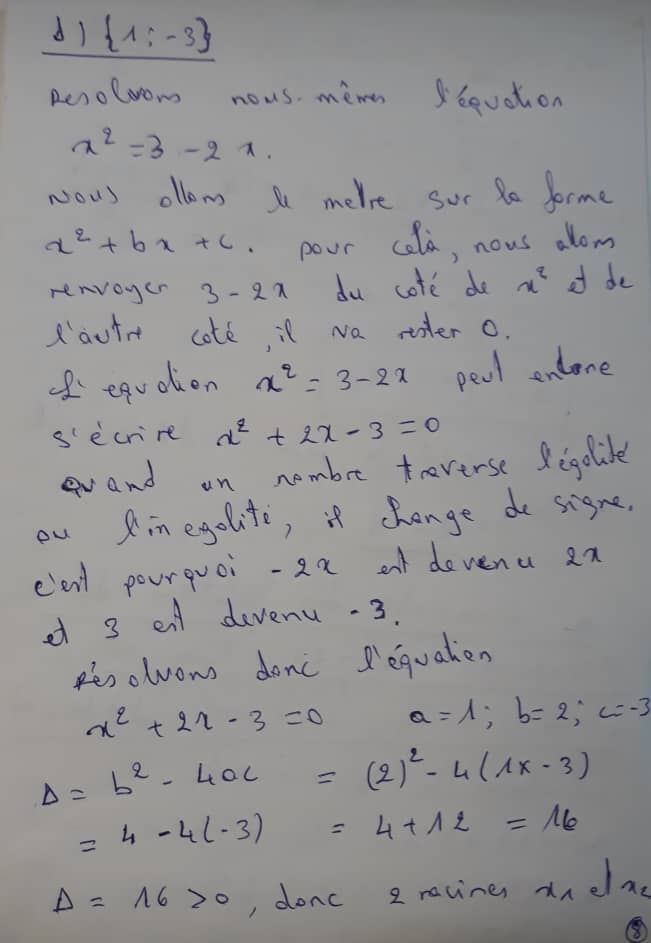 d) {1 ; -3}
Resolvons nous-mêmes l'équation
x² = 3 - 2x.
Nous allons le metre sur la forme
x² + bx + c. pour celà, nous allons
renvoyer 3 - 2x du coté de x² et de
l'autre coté, il va rester 0.
L'equation x² = 3 - 2x peut encore
s'écrire x² + 2x - 3 = 0
quand un nombre traverse l'égalité
ou l'inegalité, il change de signe.
c'est pourquoi - 2x est devenu 2x
et 3 est devenu - 3.
Résolvons donc l'équation
x² + 2x - 3 = 0 a = 1; b = 2; c = -3
Δ = b² - 4ac = (2)² - 4(1x - 3)
= 4 - 4(-3) = 4 + 12 = 16
Δ = 16 > 0, donc 2 racines x₁ et x₂
8